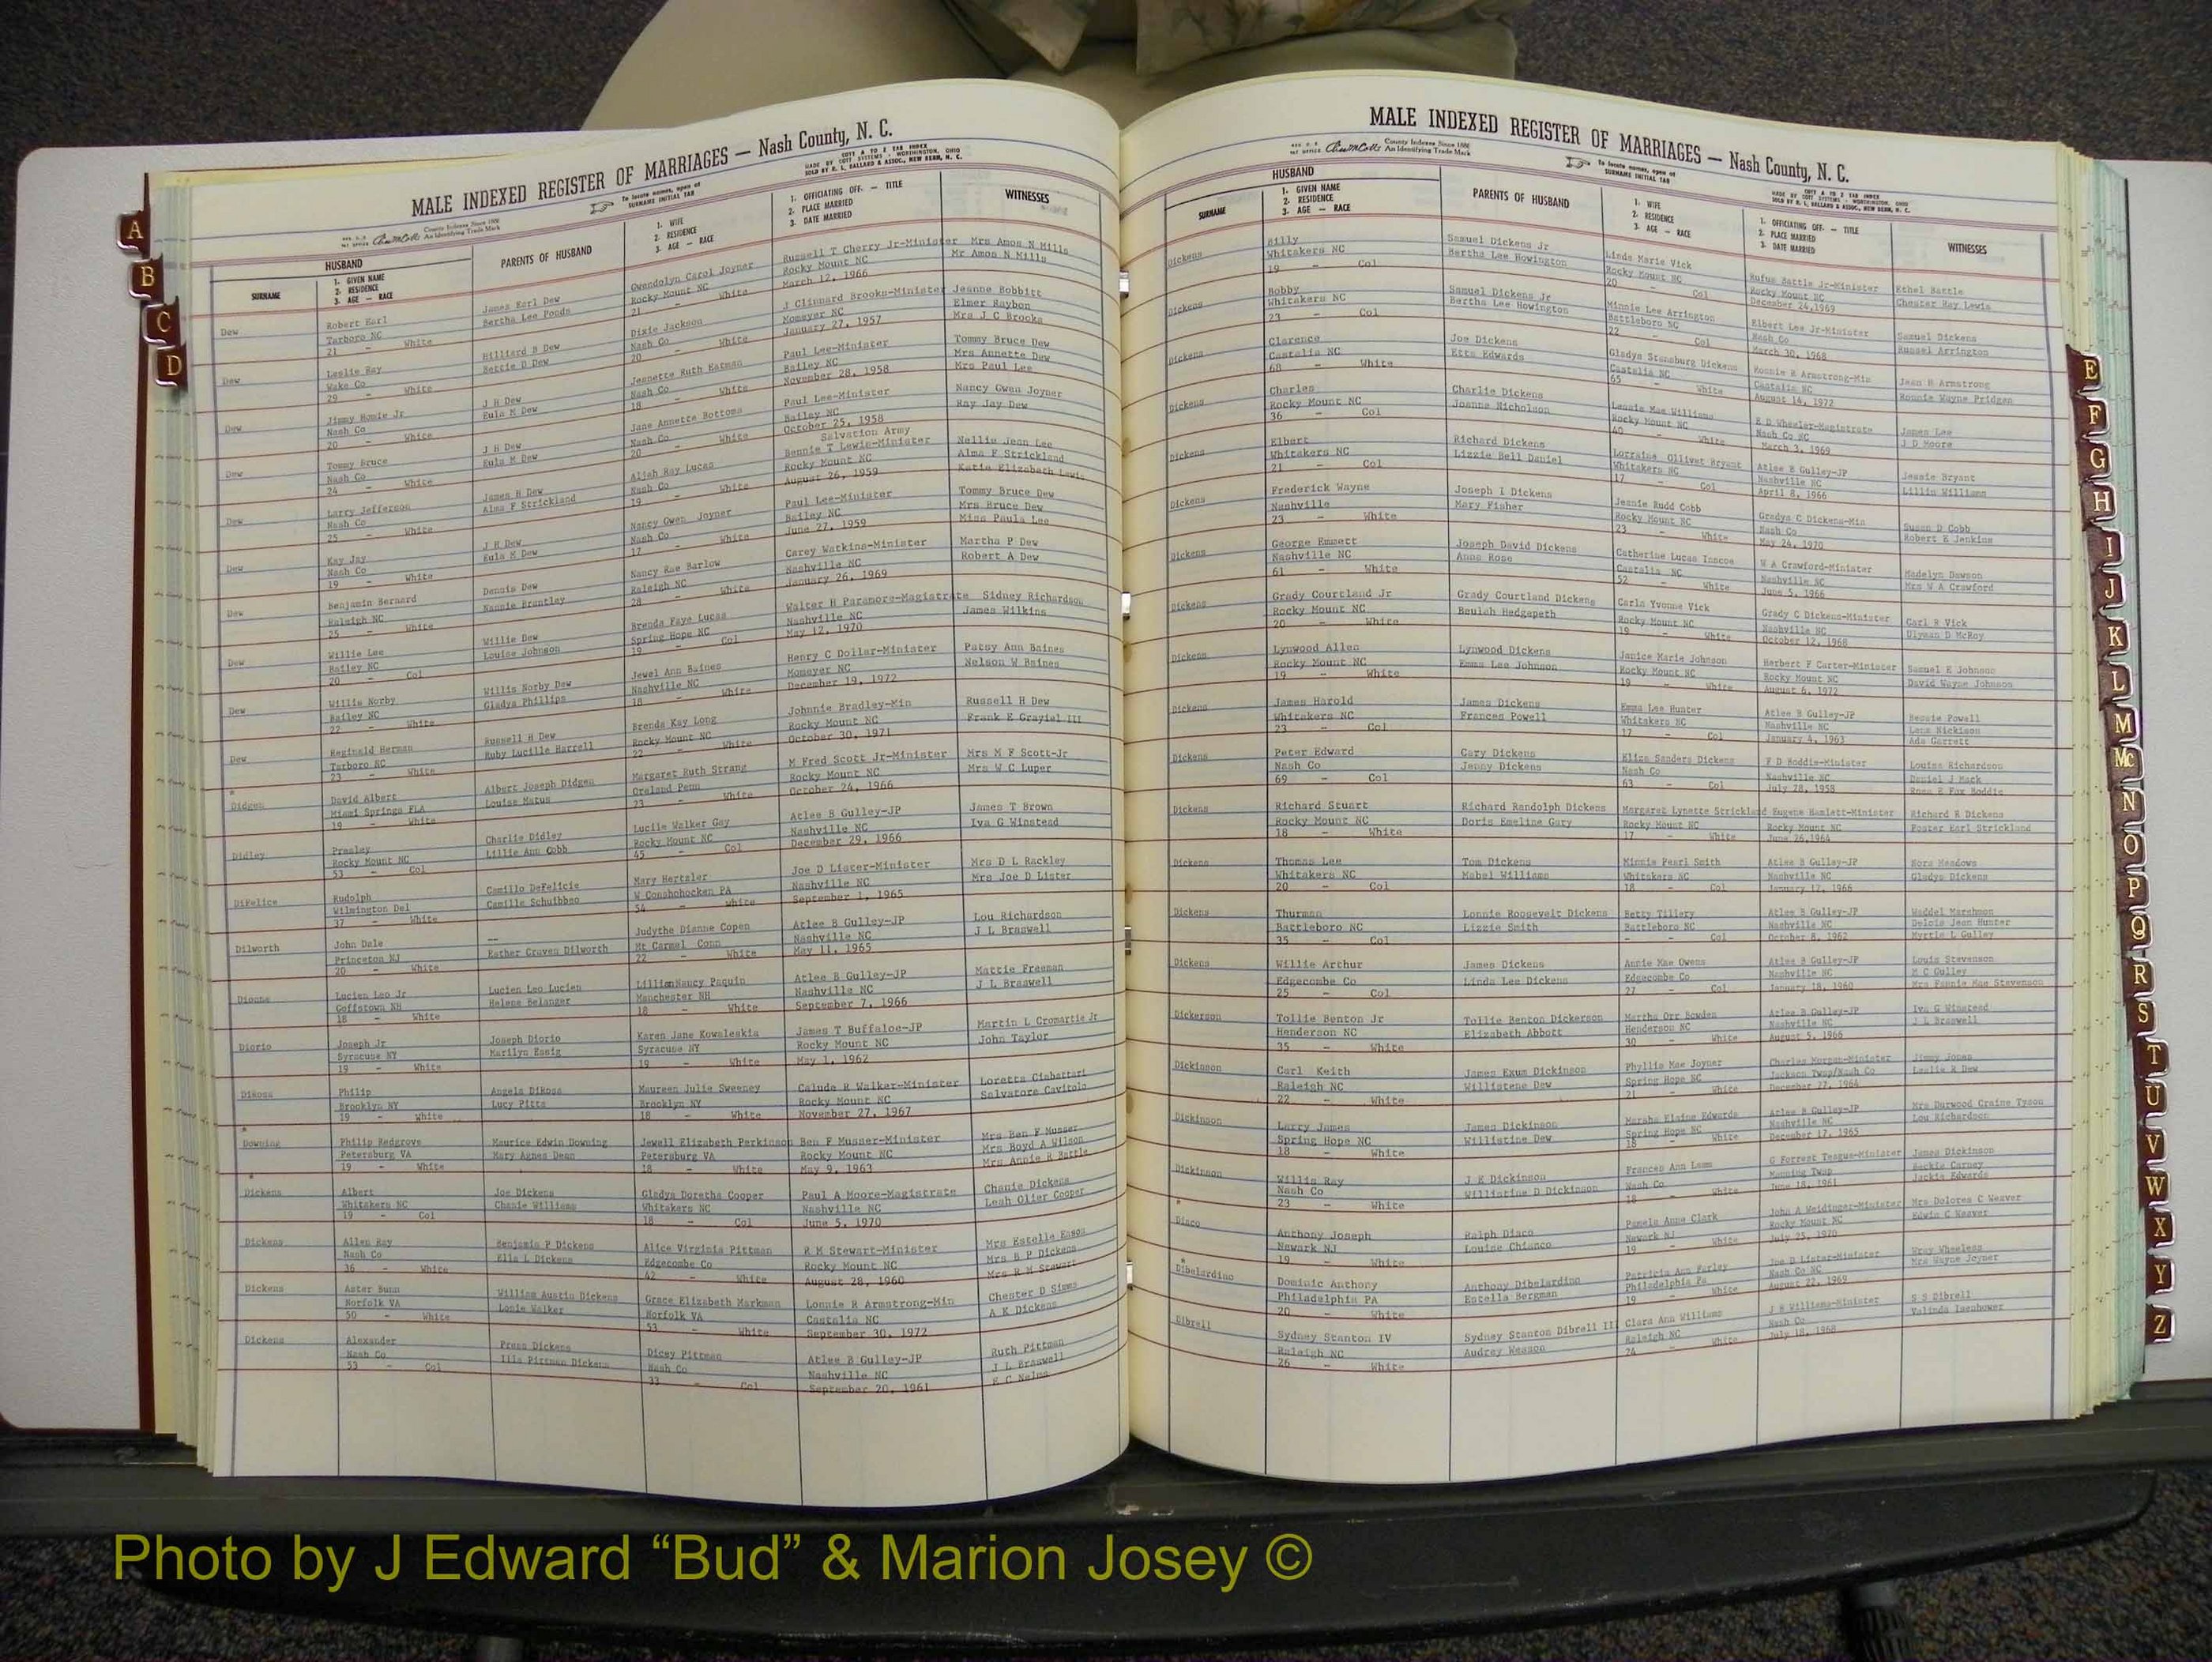 MALE INDEXED REGISTER OF MARRIAGES — Nash County, N. C.
County Indexes Since 1888
An Identifying Trade Mark
To locate names, open at
SURNAME INITIAL TAB
COTT A TO Z TAB INDEX
MADE BY COTT SYSTEMS - WORTHINGTON, OHIO
SOLD BY R. L. BALLARD & ASSOC., NEW BERN, N. C.
HUSBAND
SURNAME
1. GIVEN NAME
2. RESIDENCE
3. AGE — RACE
PARENTS OF HUSBAND
1. WIFE
2. RESIDENCE
3. AGE — RACE
1. OFFICIATING OFF. — TITLE
2. PLACE MARRIED
3. DATE MARRIED
WITNESSES
Dew Robert Earl James Earl Dew Gwendolyn Carol Joyner Russell T Cherry Jr-Minister Mrs Amos N Mills
Tarboro NC Bertha Lee Ponds Rocky Mount NC Rocky Mount NC Mr Amos N Mills
21 - White 21 - White March 12, 1966
Dew Leslie Ray Hilliard B Dew Dixie Jackson J Clinnard Brooks-Minister Jeanne Bobbitt
Wake Co Bettie D Dew Nash Co Momeyer NC Elmer Raybon
29 - White 20 - White January 27, 1957 Mrs J C Brooks
Dew Jimmy Homie Jr J H Dew Jeanette Ruth Batman Paul Lee-Minister Tommy Bruce Dew
Nash Co Eula M Dew Nash Co Bailey NC Mrs Annette Dew
20 - White 18 - White November 28, 1958 Mrs Paul Lee
Dew Tommy Bruce J H Dew Jane Annette Bottoms Paul Lee-Minister Nancy Owen Joyner
Nash Co Eula M Dew Nash Co Bailey NC Ray Jay Dew
24 - White 20 - White October 25, 1958
Salvation Army
Dew Larry Jefferson James H Dew Aliah Ray Lucas Bennie T Lewis-Minister Nellie Jean Lee
Nash Co Alma F Strickland Nash Co Rocky Mount NC Alma F Strickland
25 - White 19 - White August 26, 1959 Katie Elizabeth Lewis
Dew Kay Jay J H Dew Nancy Owen Joyner Paul Lee-Minister Tommy Bruce Dew
Nash Co Eula M Dew Nash Co Bailey NC Mrs Bruce Dew
19 - White 17 - White June 27, 1959 Miss Paula Lee
Dew Benjamin Bernard Dennis Dew Nancy Rae Barlow Carey Watkins-Minister Martha P Dew
Raleigh NC Nannie Brantley Raleigh NC Nashville NC Robert A Dew
25 - White 28 - White January 26, 1969
Dew Willie Lee Willie Dew Brenda Faye Lucas Walter H Paramore-Magistrate Sidney Richardson
Bailey NC Louise Johnson Spring Hope NC Nashville NC James Wilkins
20 - Col 19 - Col May 12, 1970
Dew Willis Norby Willis Norby Dew Jewel Ann Baines Henry C Dollar-Minister Patsy Ann Baines
Bailey NC Gladys Phillips Nashville NC Momeyer NC Nelson W Baines
22 - White 18 - White December 19, 1972
Dew Reginald Herman Russell H Dew Brenda Kay Long Johnnie Bradley-Min Russell H Dew
Tarboro NC Ruby Lucille Harrell Rocky Mount NC Rocky Mount NC Frank E Grayiel III
23 - White 22 - White October 30, 1971
Didgen David Albert Albert Joseph Didgen Margaret Ruth Strang M Fred Scott Jr-Minister Mrs M F Scott-Jr
Miami Springs FLA Louise Matus Oreland Penn Rocky Mount NC Mrs W C Luper
19 - White 23 - White October 24, 1966
Didley Presley Charlie Didley Lucile Walker Gay Atlee B Gulley-JP James T Brown
Rocky Mount NC Lillie Ann Cobb Rocky Mount NC Nashville NC Iva G Winstead
53 - Col 45 - Col December 29, 1966
DiFelice Rudolph Camillo DeFelicis Mary Hertzler Joe D Lister-Minister Mrs D L Rackley
Wilmington Del Camille Schuibbeo W Conshohocken PA Nashville NC Mrs Joe D Lister
37 - White 54 - White September 1, 1965
Dilworth John Dale -- Judythe Dianne Copen Atlee B Gulley-JP Lou Richardson
Princeton NJ Esther Craven Dilworth Mt Carmel Conn Nashville NC J L Braswell
20 - White 22 - White May 11, 1965
Dionne Lucien Leo Jr Lucien Leo Lucien Lillian Nancy Paquin Atlee B Gulley-JP Mattie Freeman
Goffstown NH Helene Belanger Manchester NH Nashville NC J L Braswell
18 - White 18 - White September 7, 1966
Diorio Joseph Jr Joseph Diorio Karen Jane Kowaleskia James T Buffaloe-JP Martin L Cromartie Jr
Syracuse NY Marilyn Essig Syracuse NY Rocky Mount NC John Taylor
19 - White 19 - White May 1, 1962
DiRosa Philip Angelo DiRosa Maureen Julie Sweeney Calude R Walker-Minister Loretta Ciabattari
Brooklyn NY Lucy Pitts Brooklyn NY Rocky Mount NC Salvatore Cavitolo
19 - White 18 - White November 27, 1967
Downing Philip Redgrove Maurice Edwin Downing Jewell Elizabeth Perkinson Ben F Musser-Minister Mrs Ben F Musser
Petersburg VA Mary Agnes Dean Petersburg VA Rocky Mount NC Mrs Boyd A Wilson
19 - White 18 - White May 9, 1963 Mrs Annie R Battle
Dickens Albert Joe Dickens Gladys Doretha Cooper Paul A Moore-Magistrate Chanie Dickens
Whitakers NC Chanie Williams Whitakers NC Nashville NC Leah Olier Cooper
19 - Col 18 - Col June 5, 1970
Dickens Allen Ray Benjamin P Dickens Alice Virginia Pittman R M Stewart-Minister Mrs Estelle Eason
Nash Co Elia L Dickens Edgecombe Co Rocky Mount NC Mrs B P Dickens
36 - White 42 - White August 28, 1960 Mrs R M Stewart
Dickens Aster Bunn William Austin Dickens Grace Elizabeth Markman Lonnie R Armstrong-Min Chester D Simms
Norfolk VA Lonie Walker Norfolk VA Castalia NC A K Dickens
50 - White 53 - White September 30, 1972
Dickens Alexander Press Dickens Dicey Pittman Atlee B Gulley-JP Ruth Pittman
Nash Co Ilia Pittman Dickens Nash Co Nashville NC J L Braswell
53 - Col 33 - Col September 20, 1961 E C Nelms
MALE INDEXED REGISTER OF MARRIAGES — Nash County, N. C.
County Indexes Since 1888
An Identifying Trade Mark
To locate names, open at
SURNAME INITIAL TAB
COTT A TO Z TAB INDEX
MADE BY COTT SYSTEMS - WORTHINGTON, OHIO
SOLD BY R. L. BALLARD & ASSOC., NEW BERN, N. C.
HUSBAND
SURNAME
1. GIVEN NAME
2. RESIDENCE
3. AGE — RACE
PARENTS OF HUSBAND
1. WIFE
2. RESIDENCE
3. AGE — RACE
1. OFFICIATING OFF. — TITLE
2. PLACE MARRIED
3. DATE MARRIED
WITNESSES
Dickens Billy Samuel Dickens Jr Linda Marie Vick Rufus Battle Jr-Minister Ethel Battle
Whitakers NC Bertha Lee Howington Rocky Mount NC Rocky Mount NC Chester Ray Lewis
19 - Col 20 - Col December 24,1969
Dickens Bobby Samuel Dickens Jr Minnie Lee Arrington Elbert Lee Jr-Minister Samuel Dickens
Whitakers NC Bertha Lee Howington Battleboro NC Nash Co Russel Arrington
23 - Col 22 - Col March 30, 1968
Dickens Clarence Joe Dickens Gladys Stansburg Dickens Ronnie R Armstrong-Min Jean H Armstrong
Castalia NC Etta Edwards Castalia NC Castalia NC Ronnie Wayne Pridgen
68 - White 65 - White August 14, 1972
Dickens Charles Charlie Dickens Lessie Mae Williams E D Wheeler-Magistrate James Lee
Rocky Mount NC Joanne Nicholson Rocky Mount NC Nash Co NC J D Moore
36 - Col 40 - White March 3, 1969
Dickens Elbert Richard Dickens Lorraine Ollivet Bryant Atlee B Gulley-JP Jessie Bryant
Whitakers NC Lizzie Bell Daniel Whitakers NC Nashville NC Lillie Williams
21 - Col 17 - Col April 8, 1966
Dickens Frederick Wayne Joseph I Dickens Jennie Rudd Cobb Gradys C Dickens-Min Susan D Cobb
Nashville Mary Fisher Rocky Mount NC Nash Co Robert E Jenkins
23 - White 23 - White May 24, 1970
Dickens George Emmett Joseph David Dickens Catherine Lucas Inscoe W A Crawford-Minister Madelyn Dawson
Nashville NC Anna Rose Castalia NC Nashville NC Mrs W A Crawford
61 - White 52 - White June 5, 1966
Dickens Grady Courtland Jr Grady Courtland Dickens Carla Yvonne Vick Grady C Dickens-Minister Carl R Vick
Rocky Mount NC Beulah Hedgepeth Rocky Mount NC Nashville NC Ulyman D McRoy
20 - White 19 - White October 12, 1968
Dickens Lynwood Allen Lynwood Dickens Janice Marie Johnson Herbert F Carter-Minister Samuel E Johnson
Rocky Mount NC Emma Lee Johnson Rocky Mount NC Rocky Mount NC David Wayne Johnson
19 - White 19 - White August 6, 1972
Dickens James Harold James Dickens Emma Lee Hunter Atlee B Gulley-JP Bessie Powell
Whitakers NC Frances Powell Whitakers NC Nashville NC Lena Nickison
23 - Col 17 - Col January 4, 1963 Ada Garrett
Dickens Peter Edward Cary Dickens Eliza Sanders Dickens F D Boddie-Minister Louise Richardson
Nash Co Jenny Dickens Nash Co Nashville NC Daniel J Mack
69 - Col 63 - Col July 28, 1958 Rosa E Fox Boddie
Dickens Richard Stuart Richard Randolph Dickens Margaret Lynette Strickland Eugene Hamlett-Minister Richard R Dickens
Rocky Mount NC Doris Emeline Gary Rocky Mount NC Rocky Mount NC Foster Earl Strickland
18 - White 17 - White June 26,1964
Dickens Thomas Lee Tom Dickens Minnie Pearl Smith Atlee B Gulley-JP Nora Meadows
Whitakers NC Mabel Williams Whitakers NC Nashville NC Gladys Dickens
20 - Col 18 - Col January 17, 1966
Dickens Thurman Lonnie Roosevelt Dickens Betty Tillery Atlee B Gulley-JP Waddel Marshmon
Battleboro NC Lizzie Smith Battleboro NC Nashville NC Delois Jean Hunter
35 - Col - - Col October 8, 1962 Myrtie L Gulley
Dickens Willie Arthur James Dickens Annie Mae Owens Atlee B Gulley-JP Louis Stevenson
Edgecombe Co Linda Lee Dickens Edgecombe Co Nashville NC M C Gulley
25 - Col 27 - Col January 18, 1960 Mrs Fannie Mae Stevenson
Dickerson Tollie Benton Jr Tollie Benton Dickerson Martha Orr Bowden Atlee B Gulley-JP Iva G Winstead
Henderson NC Elizabeth Abbott Henderson NC Nashville NC J L Braswell
35 - White 30 - White August 5, 1966
Dickinson Carl Keith James Exum Dickinson Phyllis Mae Joyner Charles Morgan-Minister Jimmy Jones
Raleigh NC Willistene Dew Spring Hope NC Jackson Twsp/Nash Co Leslie R Dew
22 - White 21 - White December 27, 1964
Dickinson Larry James James Dickinson Marsha Elaine Edwards Atlee B Gulley-JP Mrs Durwood Craine Tyson
Spring Hope NC Willistine Dew Spring Hope NC Nashville NC Lou Richardson
18 - White 18 - White December 17, 1965
Dickinson Willis Ray J E Dickinson Frances Ann Lamm G Forrest Teague-Minister James Dickinson
Nash Co Willistine D Dickinson Nash Co Manning Twsp Beckie Carney
23 - White 18 - White June 18, 1961 Jackie Edwards
Disco Anthony Joseph Ralph Disco Pamela Anne Clark John A Weidinger-Minister Mrs Dolores C Weaver
Newark NJ Louise Chianco Newark NJ Rocky Mount NC Edwin C Weaver
19 - White 19 - White July 25, 1970
Dibelardino Dominic Anthony Anthony Dibelardino Patricia Ann Farley Joe D Lister-Minister Wray Wheeless
Philadelphia PA Estella Bergman Philadelphia Pa Nash Co NC Mrs Wayne Joyner
20 - White 19 - White August 22, 1969
Dibrell Sydney Stanton IV Sydney Stanton Dibrell II Clara Ann Williams J H Williams-Minister S S Dibrell
Raleigh NC Audrey Weason Raleigh NC Nash Co Valinda Isenhower
26 - White 24 - White July 18, 1968
A
B
C
D
E
F
G
H
I
J
K
L
M
Mc
N
O
P
Q
R
S
T
U
V
W
X
Y
Z
Photo by J Edward “Bud” & Marion Josey ©